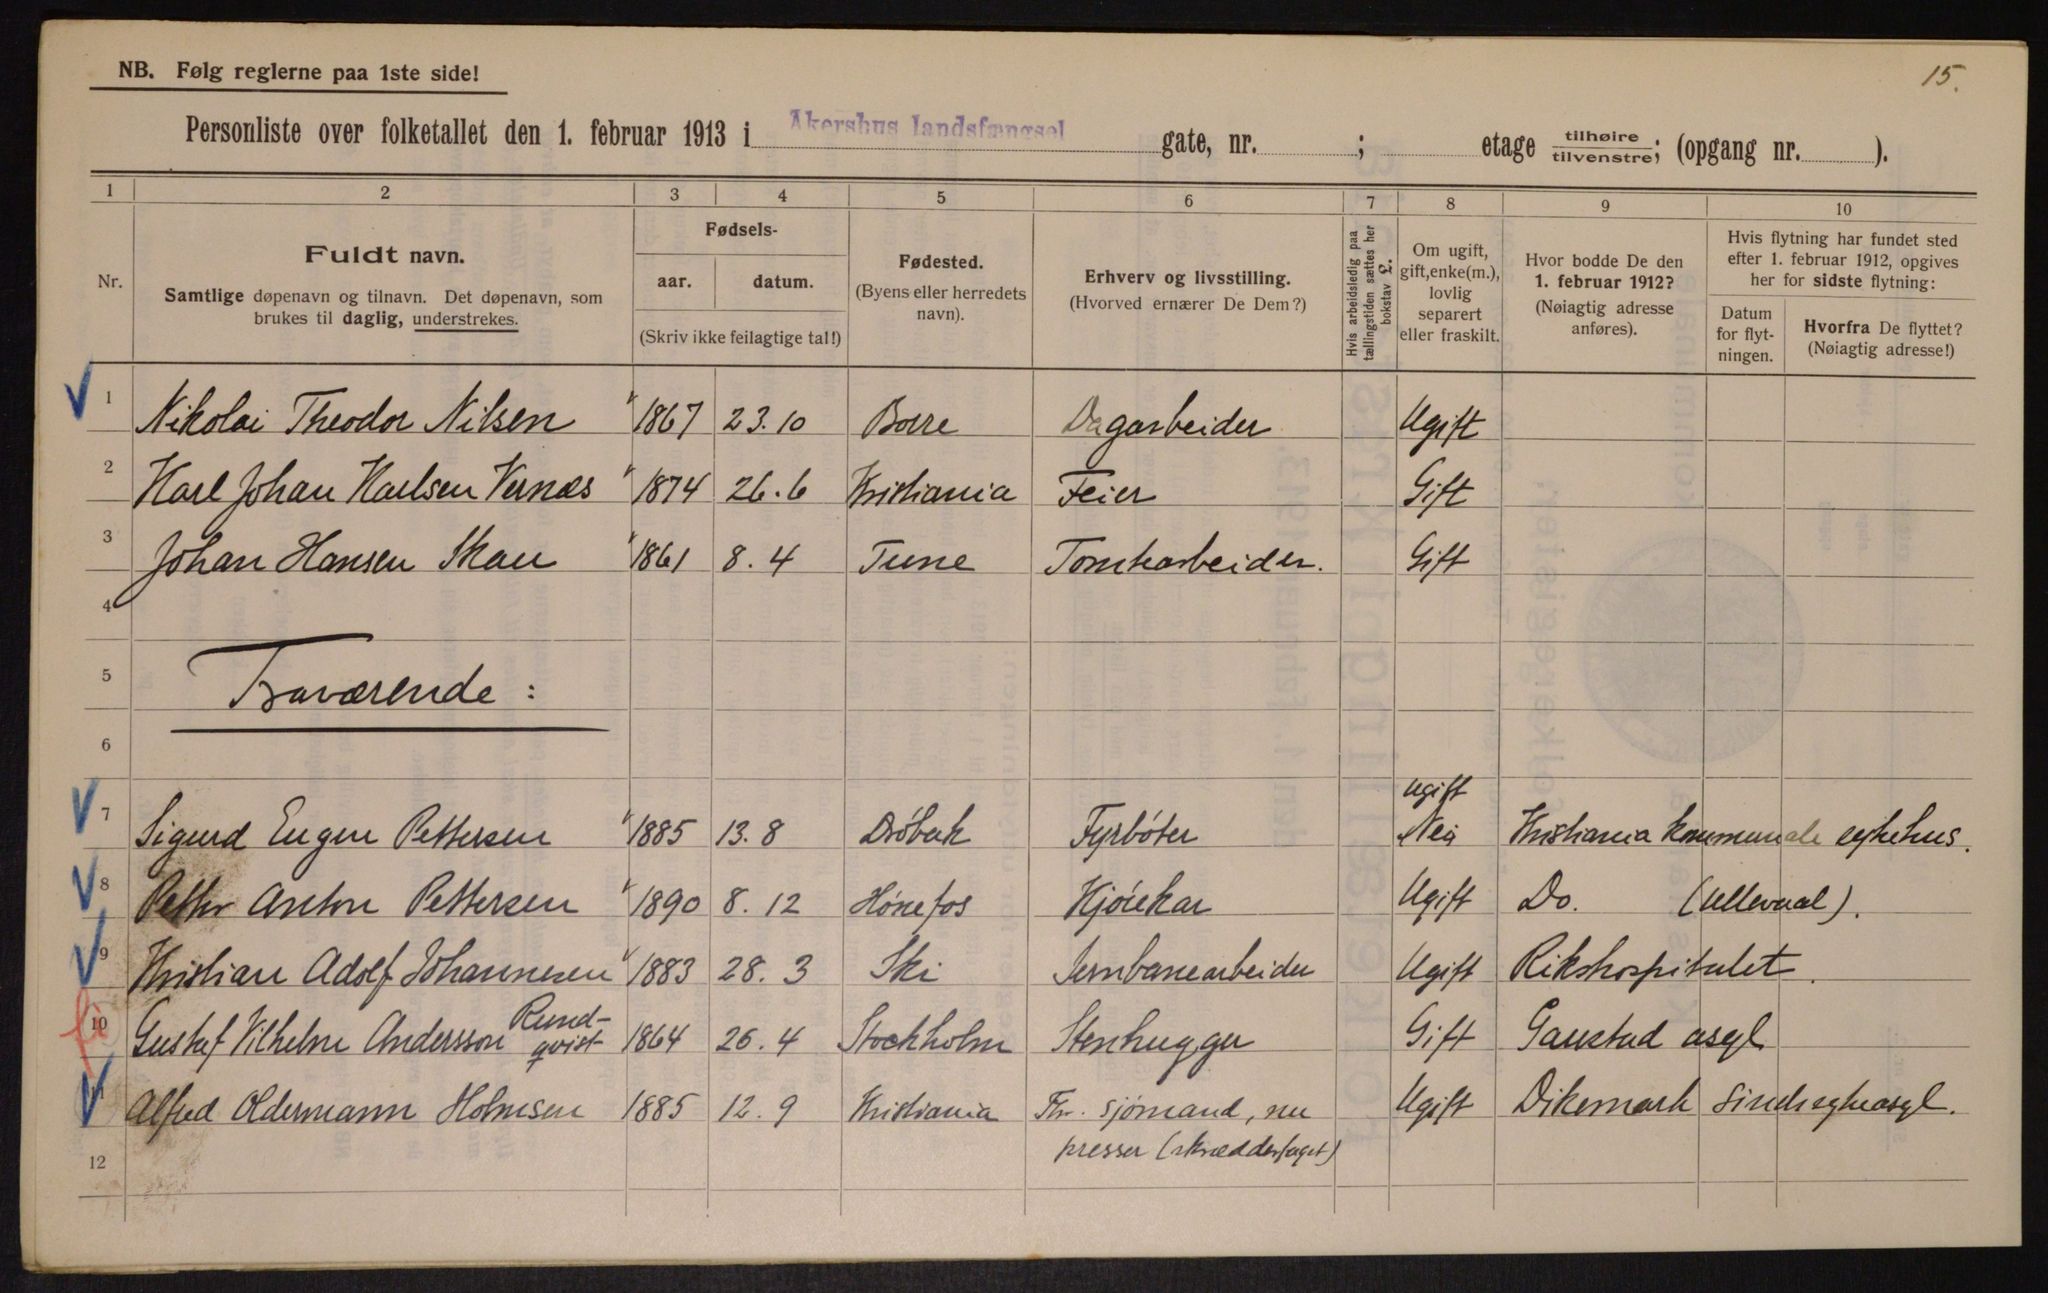 NB. Følg reglerne paa 1ste side!
15.
Personliste over folketallet den 1. februar 1913 i Akershus landsfængsel gate, nr. ; etage tilhøire/tilvenstre; (opgang nr. ).
1 2 3 4 5 6 7 8 9 10
Nr.
Fuldt navn.
Samtlige døpenavn og tilnavn. Det døpenavn, som
brukes til daglig, understrekes.
Fødsels-
aar. datum.
(Skriv ikke feilagtige tal!)
Fødested.
(Byens eller herredets
navn).
Erhverv og livsstilling.
(Hvorved ernærer De Dem?)
Hvis arbeidsledig paa
tællingstiden sættes her
bokstav L.
Om ugift,
gift, enke(m.),
lovlig
separert
eller fraskilt.
Hvor bodde De den
1. februar 1912?
(Nøiagtig adresse
anføres).
Hvis flytning har fundet sted
efter 1. februar 1912, opgives
her for sidste flytning:
Datum
for flyt-
ningen.
Hvorfra De flyttet?
(Nøiagtig adresse!)
1 Nikolai Theodor Nilsen 1867 23.10 Borre Dagarbeider Ugift
2 Karl Johan Karlsen Vernæs 1874 26.6 Kristiania Feier Gift
3 Johan Hansen Skau 1861 8.4 Tune Tomtearbeider. Gift
4
5 Fraværende:
6
ugift
7 Sigurd Eugen Pettersen 1885 13.8 Drøbak Fyrbøter Nei Kristiania kommunale sykehus.
8 Petter Anton Pettersen 1890 8.12 Hønefos Kjørekar Ugift Do. (Ullevaal).
9 Kristian Adolf Johannesen 1883 28.3 Ski Jernbanearbeider Ugift Rikshospitalet.
10 Gustaf Vilhelm Andersson Rund-
qvist 1864 26.4 Stockholm Stenhugger Gift Gaustad asyl
Alfred Oldermann Holmsen 1885 12.9 Kristiania Fhv. sjømand, nu Ugift Dikemark sindsykeasyl.
presser (skrædderfaget)
12